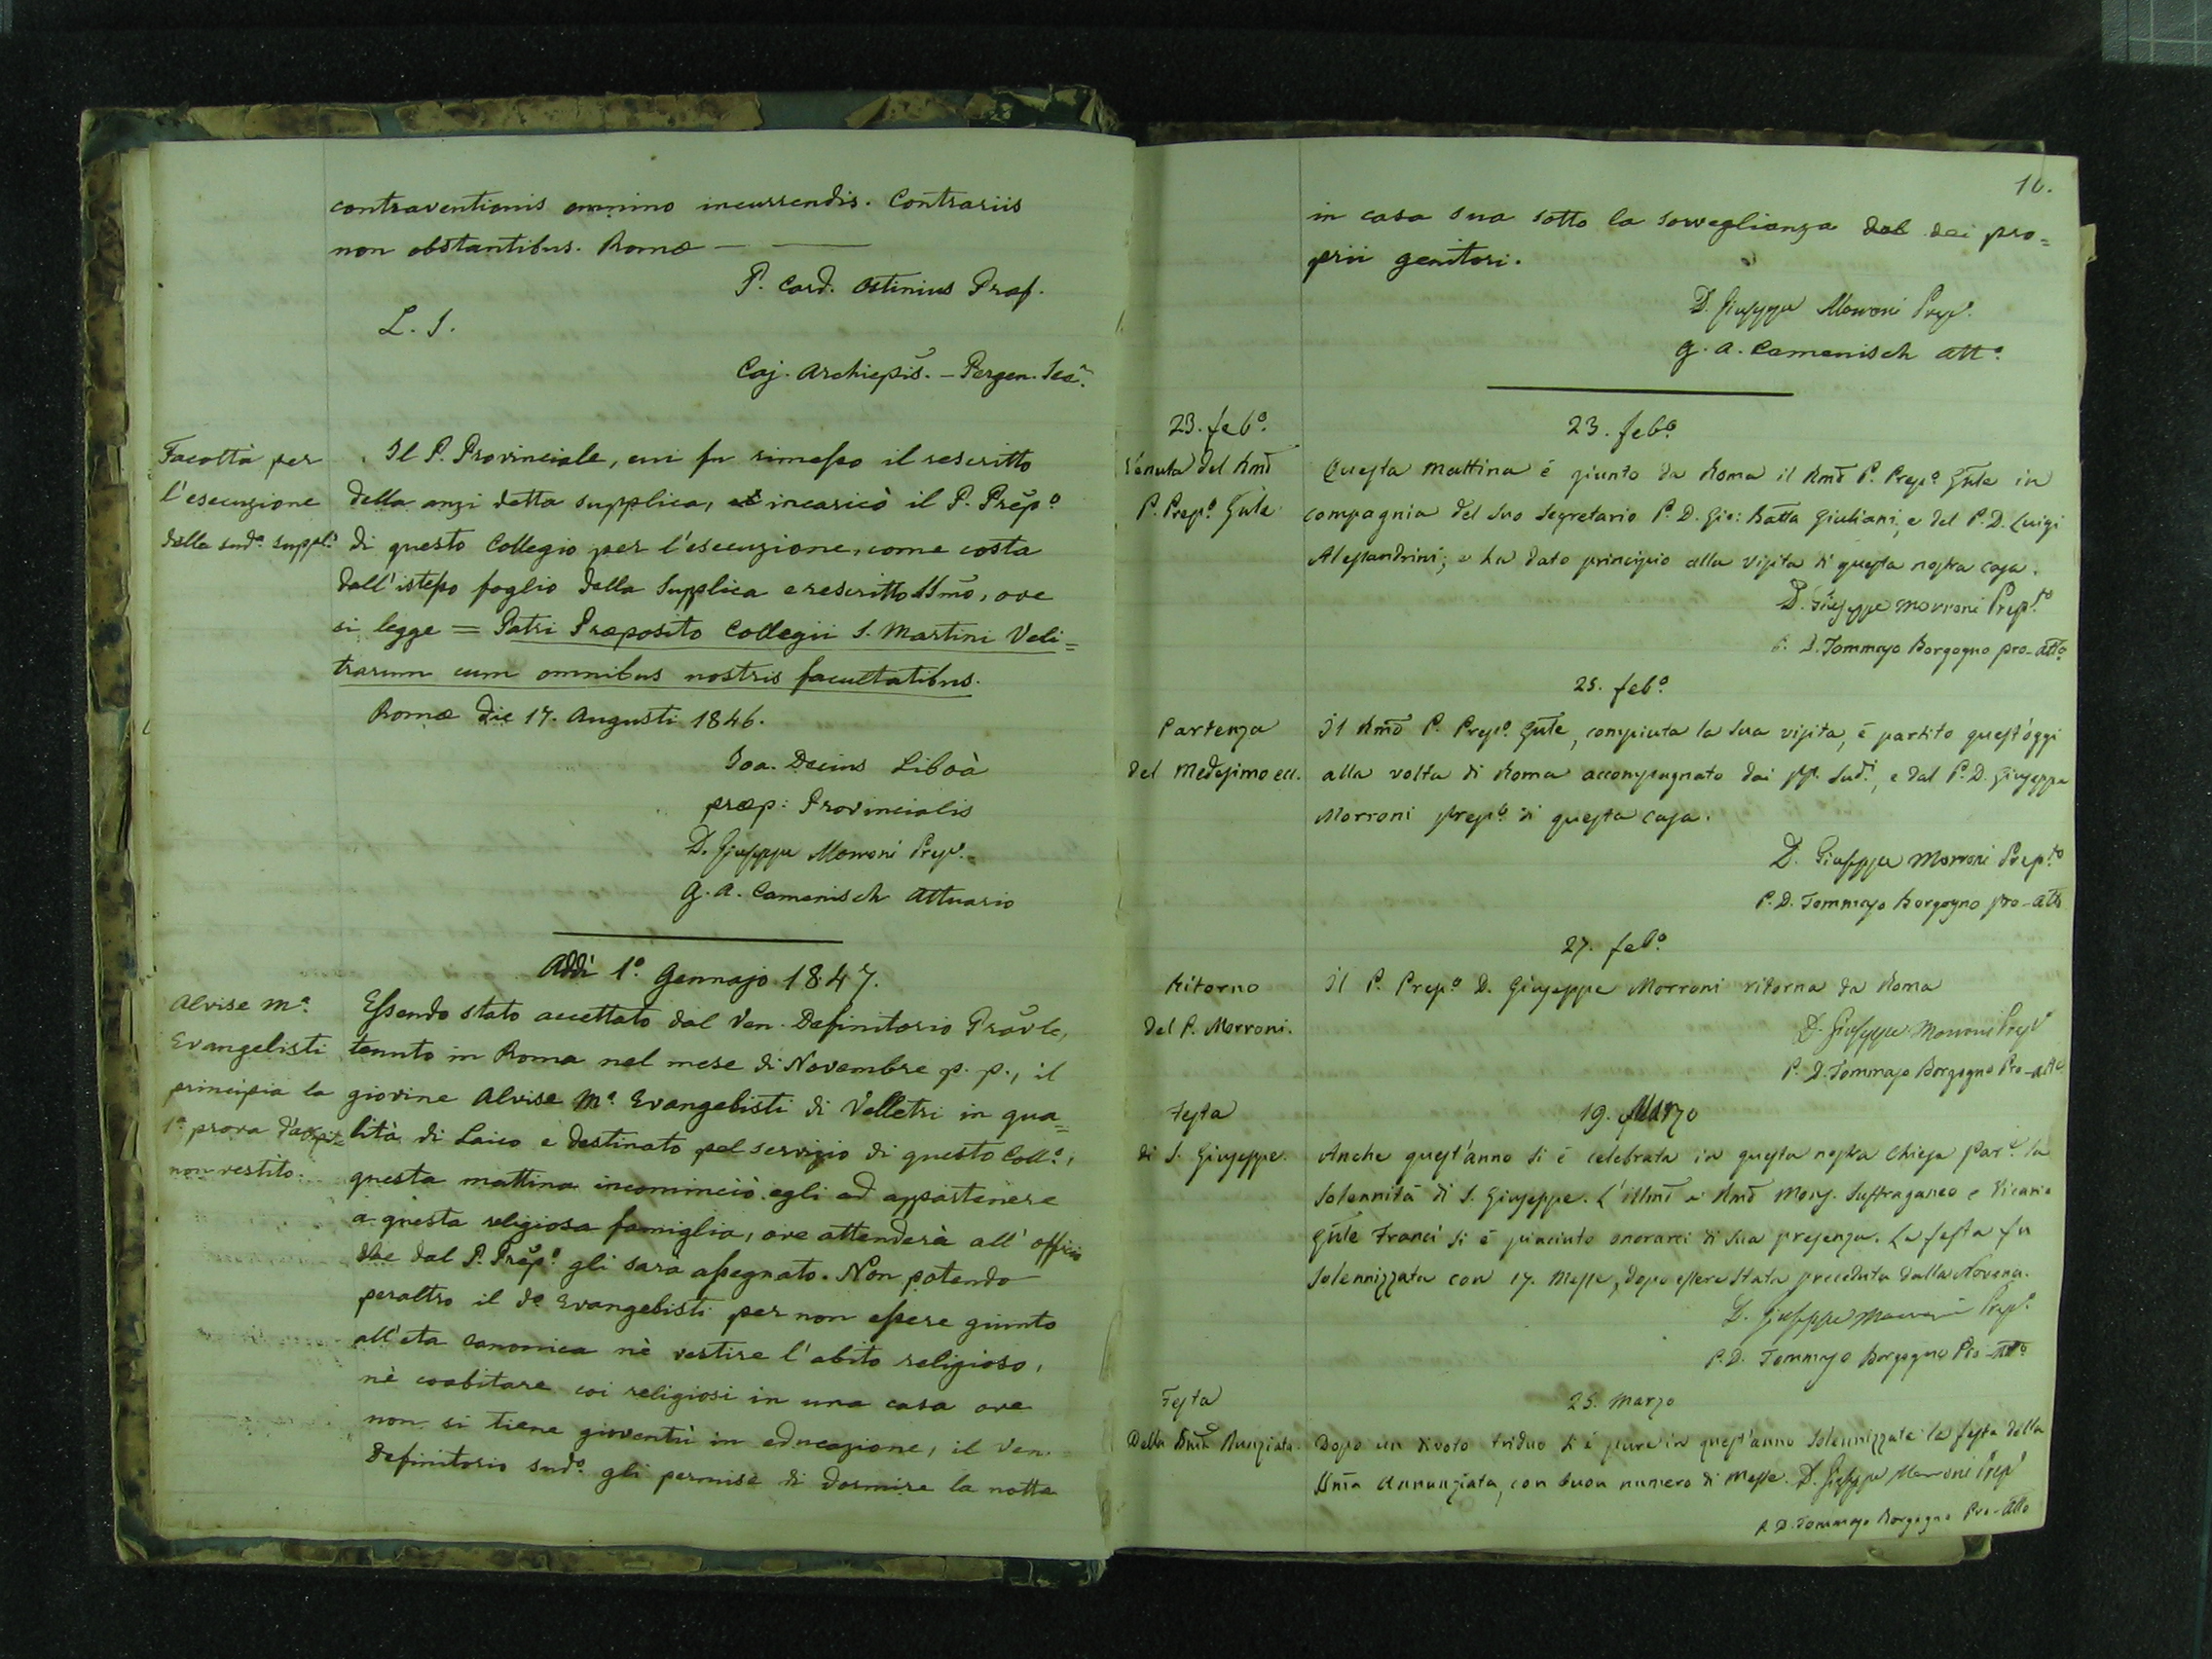 contraventionis omnino incurrendis. Contrariis
non obstantibus. Romæ —
P. Card. Ostinius Præf.
L. S.
Caj. Archiepis̃. – Pergen. Sec̃.
Facoltà per
l'esecuzione
della sudª. suppl.
Il P. Provinciale, cui fu rimesso il rescritto
della anzi detta supplica, incaricò il P. Prep̃º
di questo Collegio per l'esecuzione, come costa
dall'istesso foglio della Supplica e rescritto SSmo, ove
si legge = Patri Præposito Collegii S. Martini Veli=
trarum cum omnibus nostris facultatibus.
Romæ die 17. Augusti 1846.
Joa. Decius Liboà
præp: Provincialis
D. Giuseppe Morroni Prep.
G. A. Camenisch Attuario
Addì 1º Gennajo 1847.
Alvise Mª.
Evangelisti
principia la
1ª prova d'ospite
non vestito.
Essendo stato accettato dal Ven. Definitorio Prõvle,
tenuto in Roma nel mese di Novembre p. p., il
giovine Alvise Mª. Evangelisti di Velletri in qua=
lità di Laico e destinato pel servizio di questo Collº,
questa mattina incominciò egli ad appartenere
a questa religiosa famiglia, ove attenderà all' officio
che dal P. Prep̃º gli sara assegnato. Non potendo
peraltro il dº Evangelisti per non essere giunto
all'eta canonica nè vestire l'abito religioso,
nè coabitare coi religiosi in una casa ove
non si tiene gioventù in educazione, il Ven.
Definitorio sudº. gli permise di dormire la notte
10.
in casa sua sotto la sorveglianza dal dei pro=
prii genitori.
D. Giuseppe Morroni Prep.
G. A. Camenisch Attº.
23. febº.
23. febº.
Venuta del Rmõ
P. Prepº. Gñle
Questa mattina è giunto da Roma il Rmõ P. Prepº Gñle in
compagnia del suo Segretario P. D. Gio: Batta Giuliani, e del P. D. Luigi
Alessandrini; e ha dato principio alla visita di questa nostra casa.
D. Giuseppe Morroni Prep.to
P. D. Tommaso Borgogno pro-attº
25. febº.
Partenza
del Medesimo ecc.
Il Rmõ P. Prepº. Gñle, compiuta la sua visita, è partito quest'oggi
alla volta di Roma accompagnato dai PP. Sudi, e dal P. D. Giuseppe
Morroni Prepº. di questa casa.
D. Giuseppe Morroni Prep.to
P. D. Tommaso Borgogno pro-attº
27. febº.
Ritorno
del P. Morroni.
Il P. Prepº. D. Giuseppe Morroni ritorna da Roma
D. Giuseppe Morroni Prep.
P. D. Tommaso Borgogno Pro-attº
19. Marzo
Festa
di S. Giuseppe.
Anche quest'anno si è celebrata in questa nostra Chiesa Par.le la
solennità di S. Giuseppe. L'illmõ e Rmõ Mons. Suffraganeo e Vicario
Gñle Franci si è piaciuto onorarci di sua presenza. La festa fu
solennizzata con 17. Messe, dopo essere stata preceduta dalla Novena.
D. Giuseppe Morroni Prep.
P. D. Tommaso Borgogno Pro-attº
25. Marzo
Festa
Della SSmã Nunziata.
Dopo un divoto triduo si è pure in quest'anno solennizzata la festa della
SSmã Annunziata, con buon numero di Messe. D. Giuseppe Morroni Prep.
P. D. Tommaso Borgogno Pro-attº